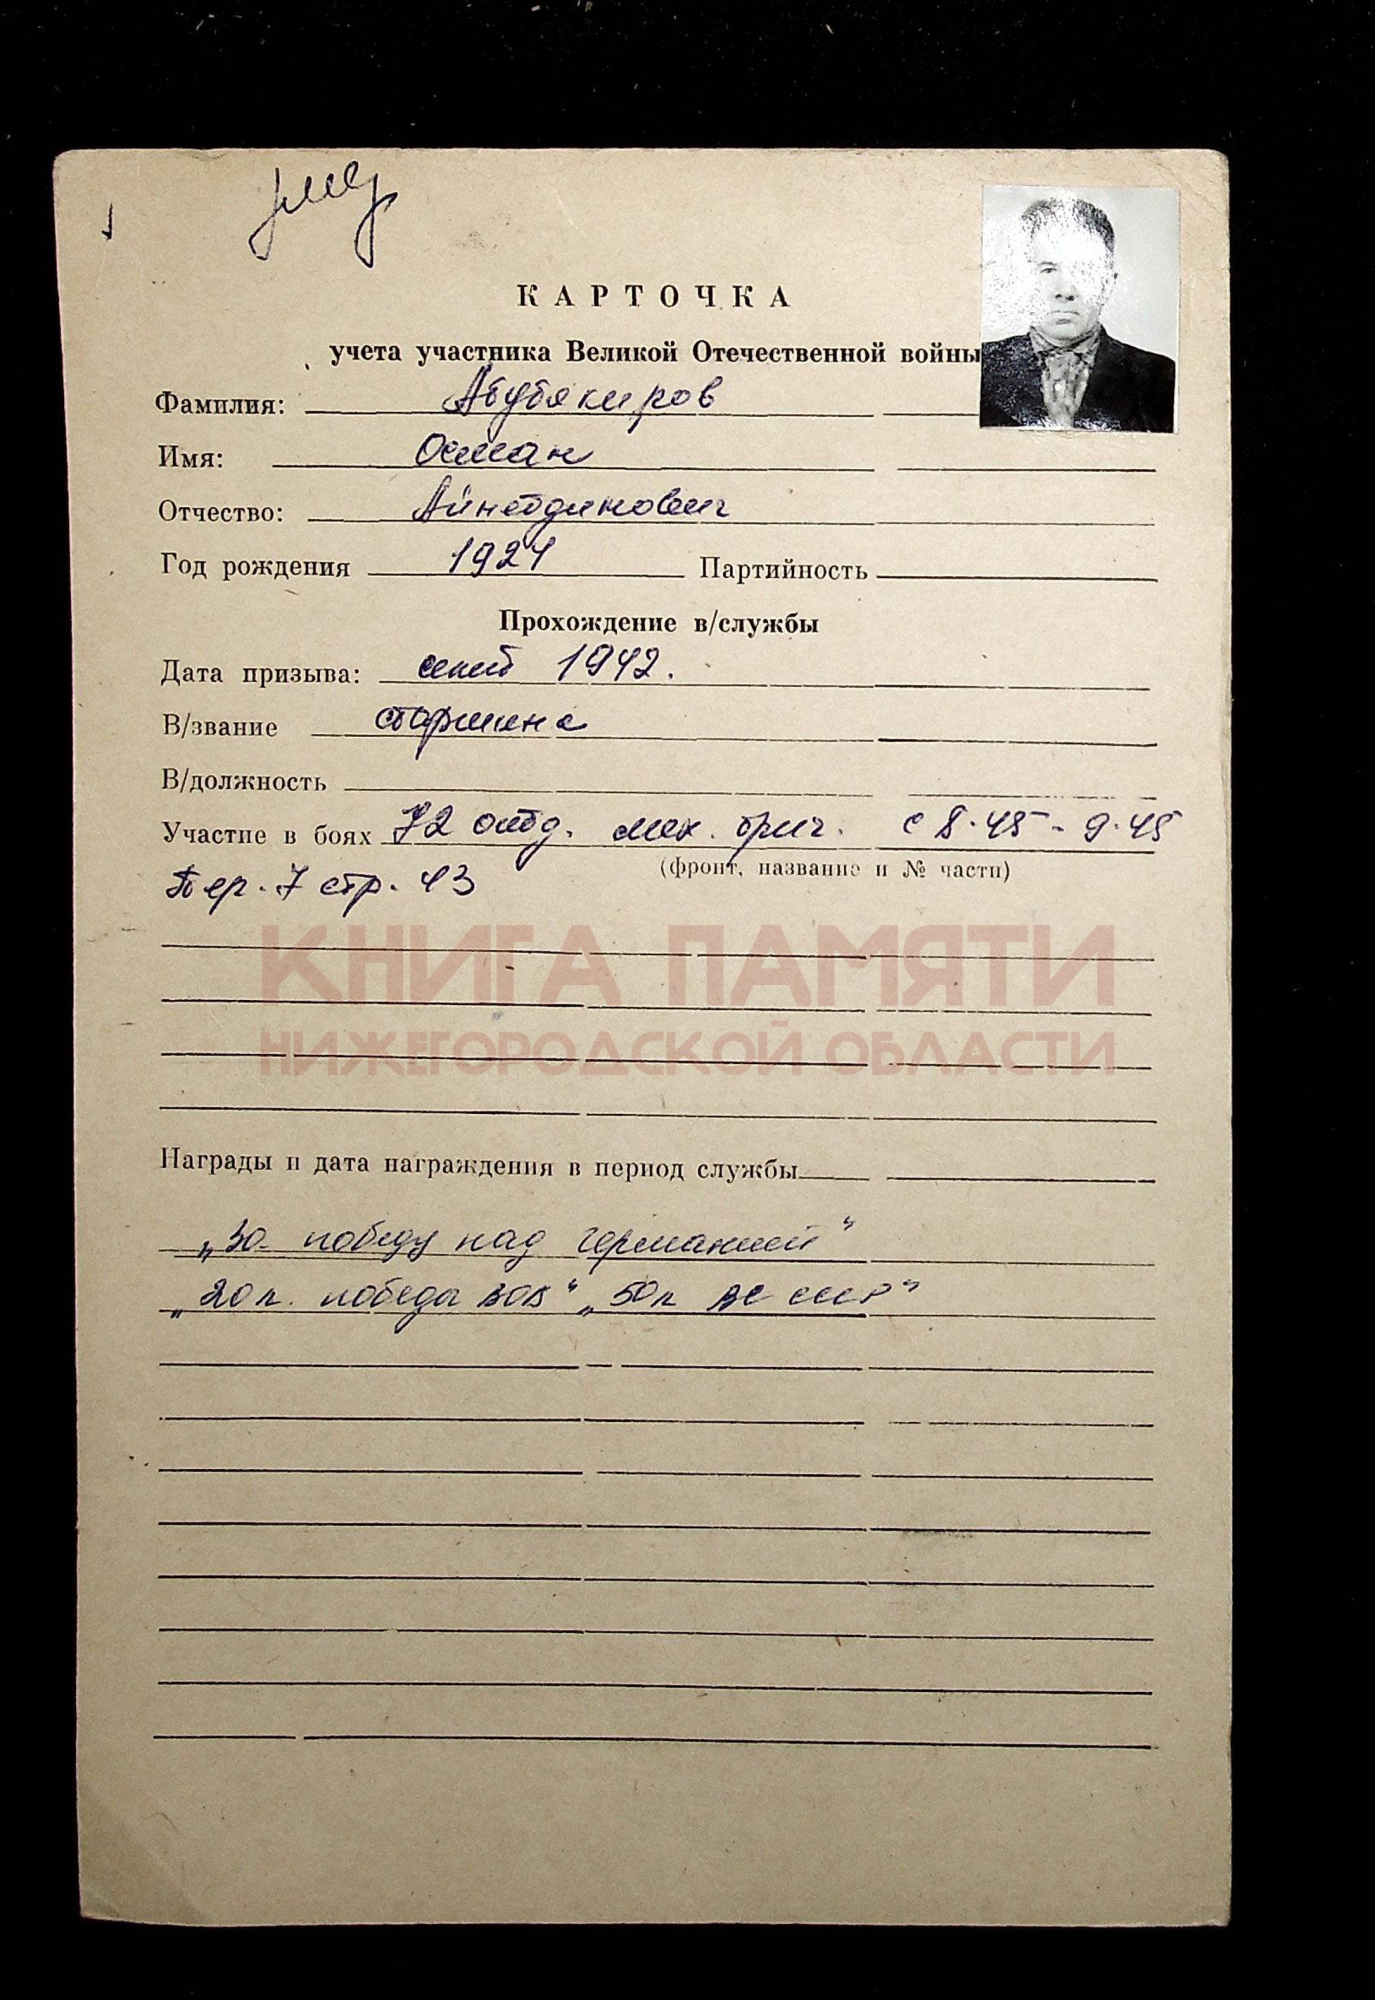 КАРТОЧКА
учета участника Великой Отечественной войны
Фамилия: Абубякиров
Имя: Осман
Отчество: Айнетдинович
Год рождения 1924 Партийность
Прохождение в/службы
Дата призыва: сент 1942.
В/звание старшина
В/должность
Участие в боях 72 отд. мех. бриг. с 8.45 - 9.45
(фронт, название и № части)
Пер. 7 стр. 43
КНИГА ПАМЯТИ
НИЖЕГОРОДСКОЙ ОБЛАСТИ
Награды и дата награждения в период службы
„За победу над Германией“
„20 л. победы ВОВ“ „50 л ВС СССР“